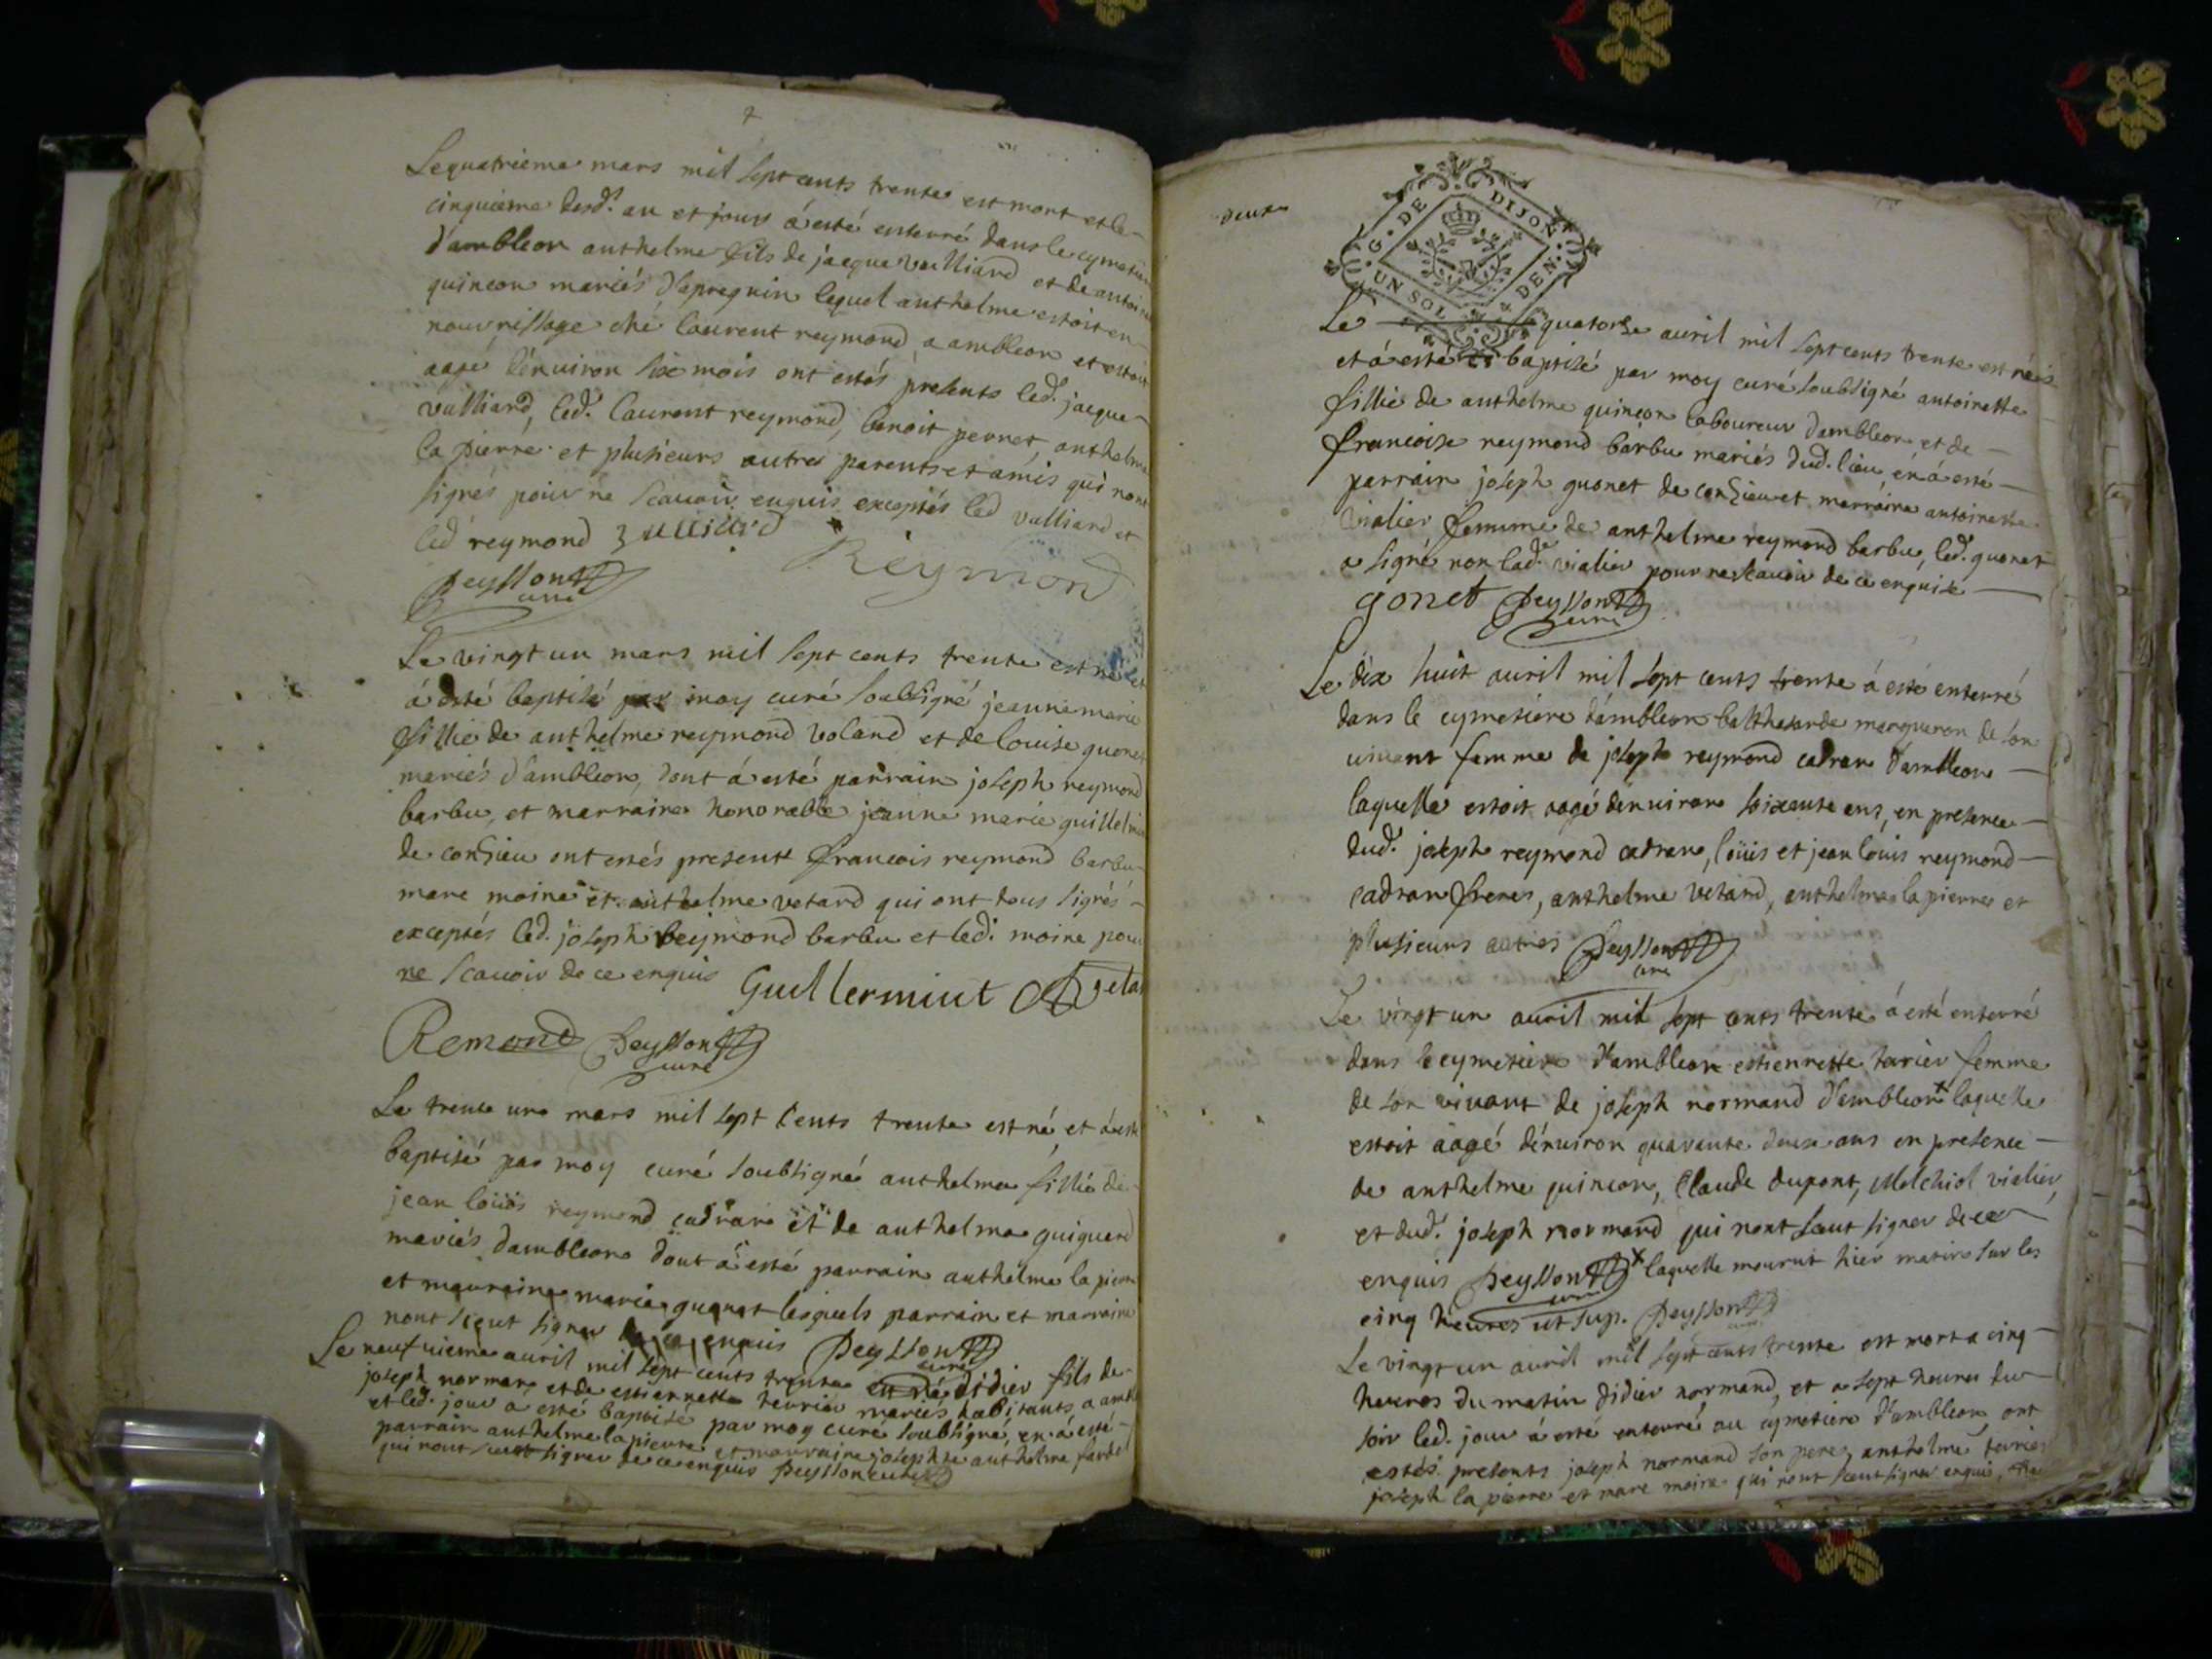 2
Le quatrieme mars mil sept cents trente est mort et le
cinquieme desd. an et jour á esté enterré dans le cymetiere
d'ambleon anthelme fils de jacque vulliard et de antoi
quincon mariés d'apregnin lequel anthelme estoit en
nourrissage ché laurent reymond a ambleon et estoit
aagé d'enuiron six mois ont estés presents led. jacque
vulliard, led. laurent reymond, benoit pernet, anthelme
la pierre et plusieurs autres parents et amis qui nont
signés pour ne scauoir enquis exceptés led vulliard et
led reymond vulliard
Reymond
Peysson curé
Le vingt un mars mil sept cents trente est né et
á esté baptisé par moy curé soubsigné jeanne marie
fillie de anthelme reymond voland et de louise quonet
mariés d'ambleon, dont á esté parrain joseph reymond
barbu, et marraine honorable jeanne marie guillelmin
de conzieu ont estés present francois reymond barbu
marc moine et anthelme vetard qui ont tous signés
exceptés led. joseph reymond barbu et led. moine pour
ne scauoir de ce enquis Guillermint A vetar
Remond Peysson curé
Le trente un mars mil sept cents trente est né et á esté
baptisé par moy curé soubsigné anthelma fillie de
jean loüis reymond cadran et de anthelma guiguerd
mariés d'ambleon dont á esté parrain anthelme la pierre
et marraine marie quonet lesquels parrain et marraine
nont sceut signer de ce enquis Peysson curé
Le neufuieme auril mil sept cents trente est né didier fils de
joseph norman et de estiennette terrier mariés habitants a amb
et led. jour a esté baptisé par moy curé soubsigné, en á esté
parrain anthelme la pierre et marraine josephte anthelme fardel
qui nont sceut signer de ce enquis Peysson curé
deux
G. DE DIJON
UN SOL DEN.
Le quatorse auril mil sept cents trente est née
et á esté baptisé par moy curé soubsigné antoinette
fillie de anthelme quincon laboureur d'ambleon et de
francoise reymond barbu mariés dud. lieu, en á esté
parrain joseph quonet de conzieu et marraine antoinette
vialier femme de anthelme reymond barbu, led. quonet
a signé non lad. vialier pour ne scauoir de ce enquise
gonet Peysson curé
Le dix huit auril mil sept cents trente á esté enterré
dans le cymetiere d'ambleon balthesarde marqueron de son
uiuant femme de joseph reymond cadran d'ambleon
laquelle estoit aagé denuiron soixente ens, en presence
dud. joseph reymond cadran, loüis et jean louis reymond
cadran freres, anthelme vetard, anthelme la pierre et
plusieurs autres Peysson curé
Le vingt un auril mil sept cents trente á esté enterré
dans le cymetiere d'ambleon estiennette terrier femme
de son viuant de joseph normand d'ambleon x laquelle
estoit áagé dénuiron quarante deux ans en presence
de anthelme quincon, Claude dupont, Melchiol vialier,
et dud. joseph normand qui nont sceut signer de ce
enquis Peysson curé x laquelle mourut hier matin sur les
cinq heures ut sup. Peysson curé
Le vingt un auril mil sept cents trente est mort a cinq
heures du matin didier normand, et a sept heures du
soir led. jour á esté enterré au cymetiere d'ambleon, ont
estés presents joseph normand son pere, anthelme terrier
joseph la pierre et marc moine qui nont sceut signer enquis,